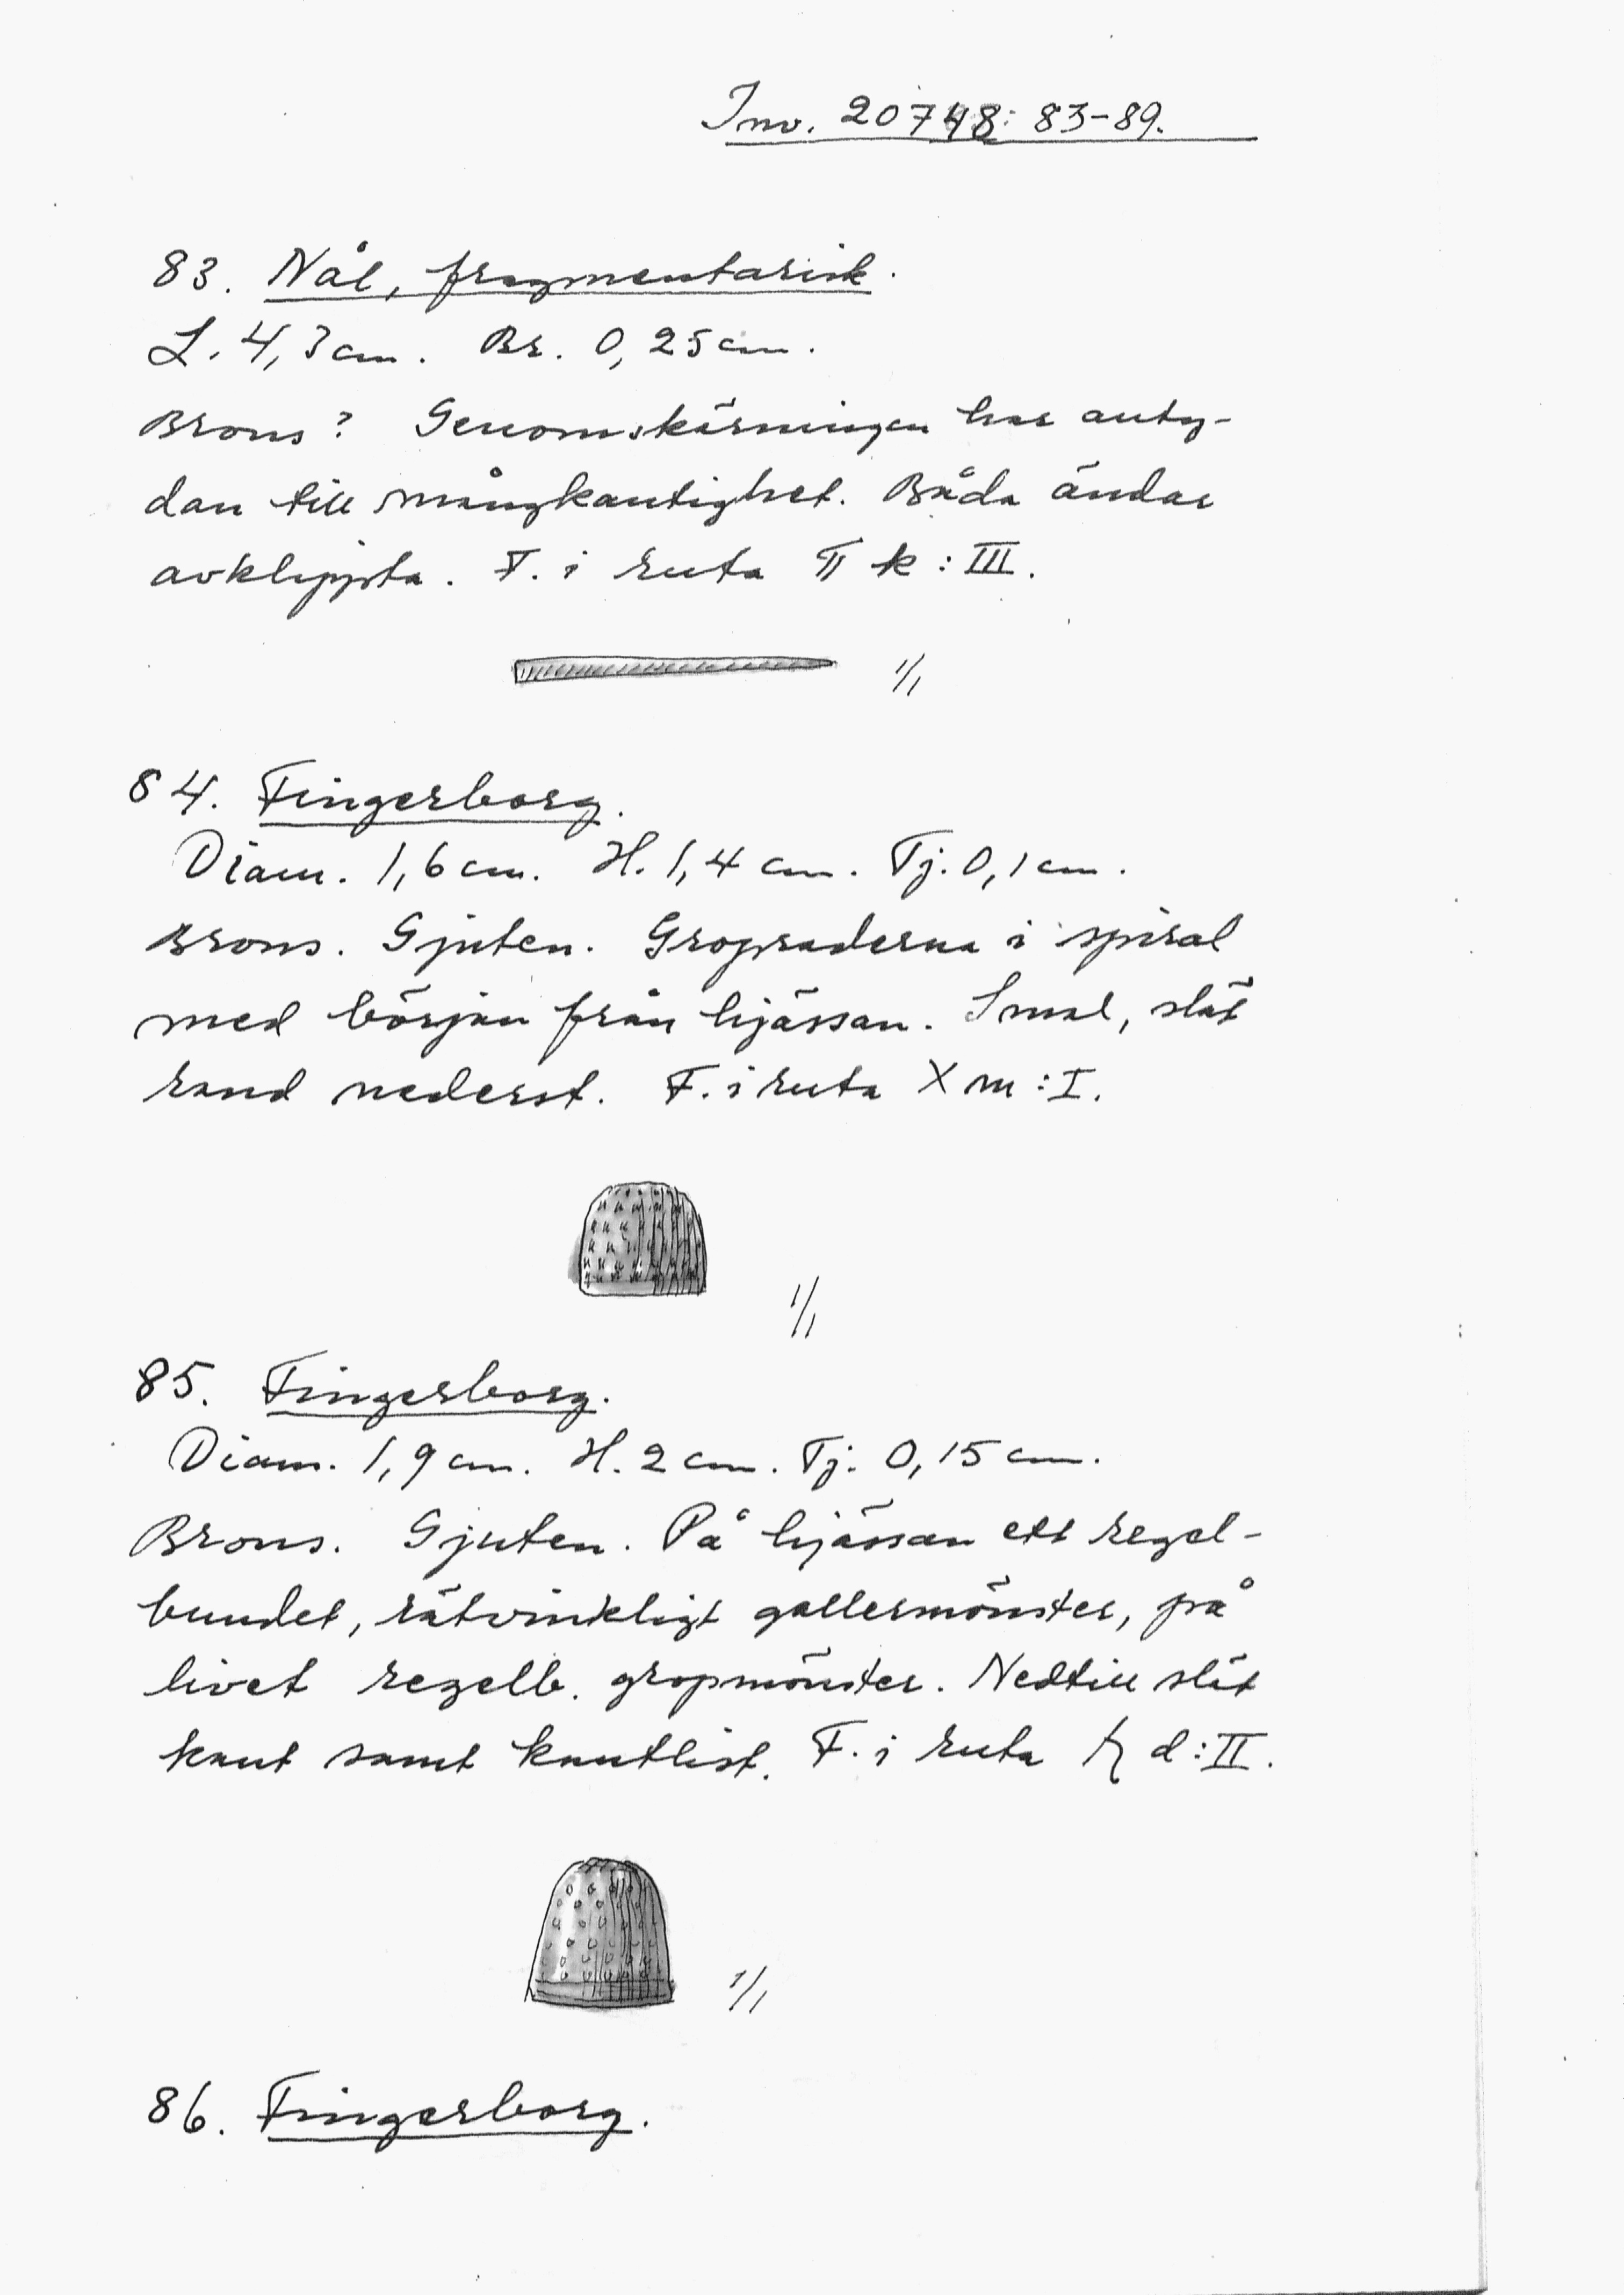 Inv. 20748: 83-89.
83. Nål, fragmentarisk.
L. 4,3 cm. Br. 0,25 cm.
Brons? Genomskärningen har anty-
dan till mångkantighet. Båda ändar
avklippta. F. i ruta π k : III.
1/1
84. Fingerborg.
Diam. 1,6 cm. H. 1,4 cm. Tj. 0,1 cm.
Brons. Gjuten. Gropraderna i spiral
med början från hjässan. Smal, slät
rand nederst. F. i ruta X m : I.
1/1
85. Fingerborg.
Diam. 1,9 cm. H. 2 cm. Tj. 0,15 cm.
Brons. Gjuten. På hjässan ett regel-
bundet, rätvinkligt gallermönster, på
livet regelb. gropmönster. Nedtill slät
kant samt kantlist. F. i ruta d : II.
1/1
86. Fingerborg.